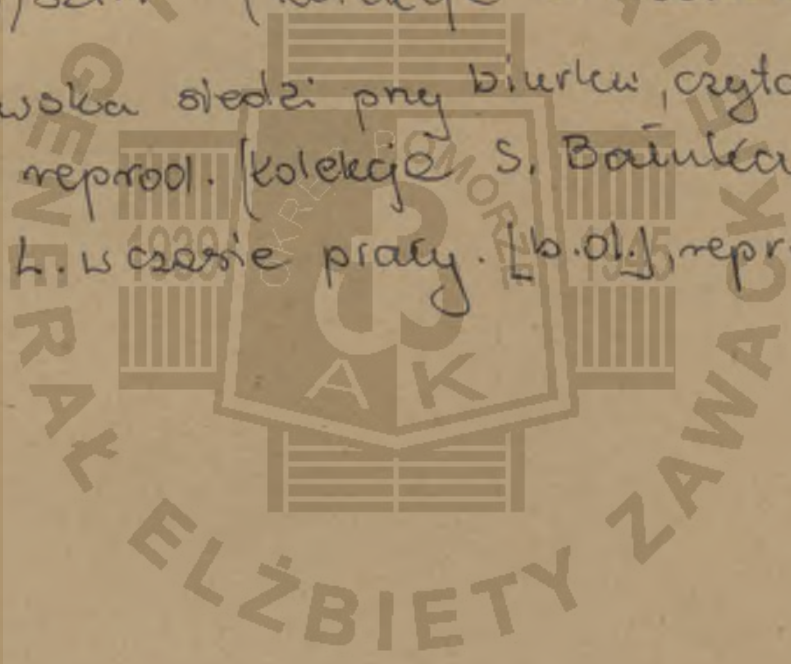 wska siedzi przy biurku, czyta
reprod. [kolekcja S.
L. w czasie pracy. [b.d.], repr
GENERAŁ ELŻBIETY ZAWAC
OKRĘG POMORZE
1939 1945
AK